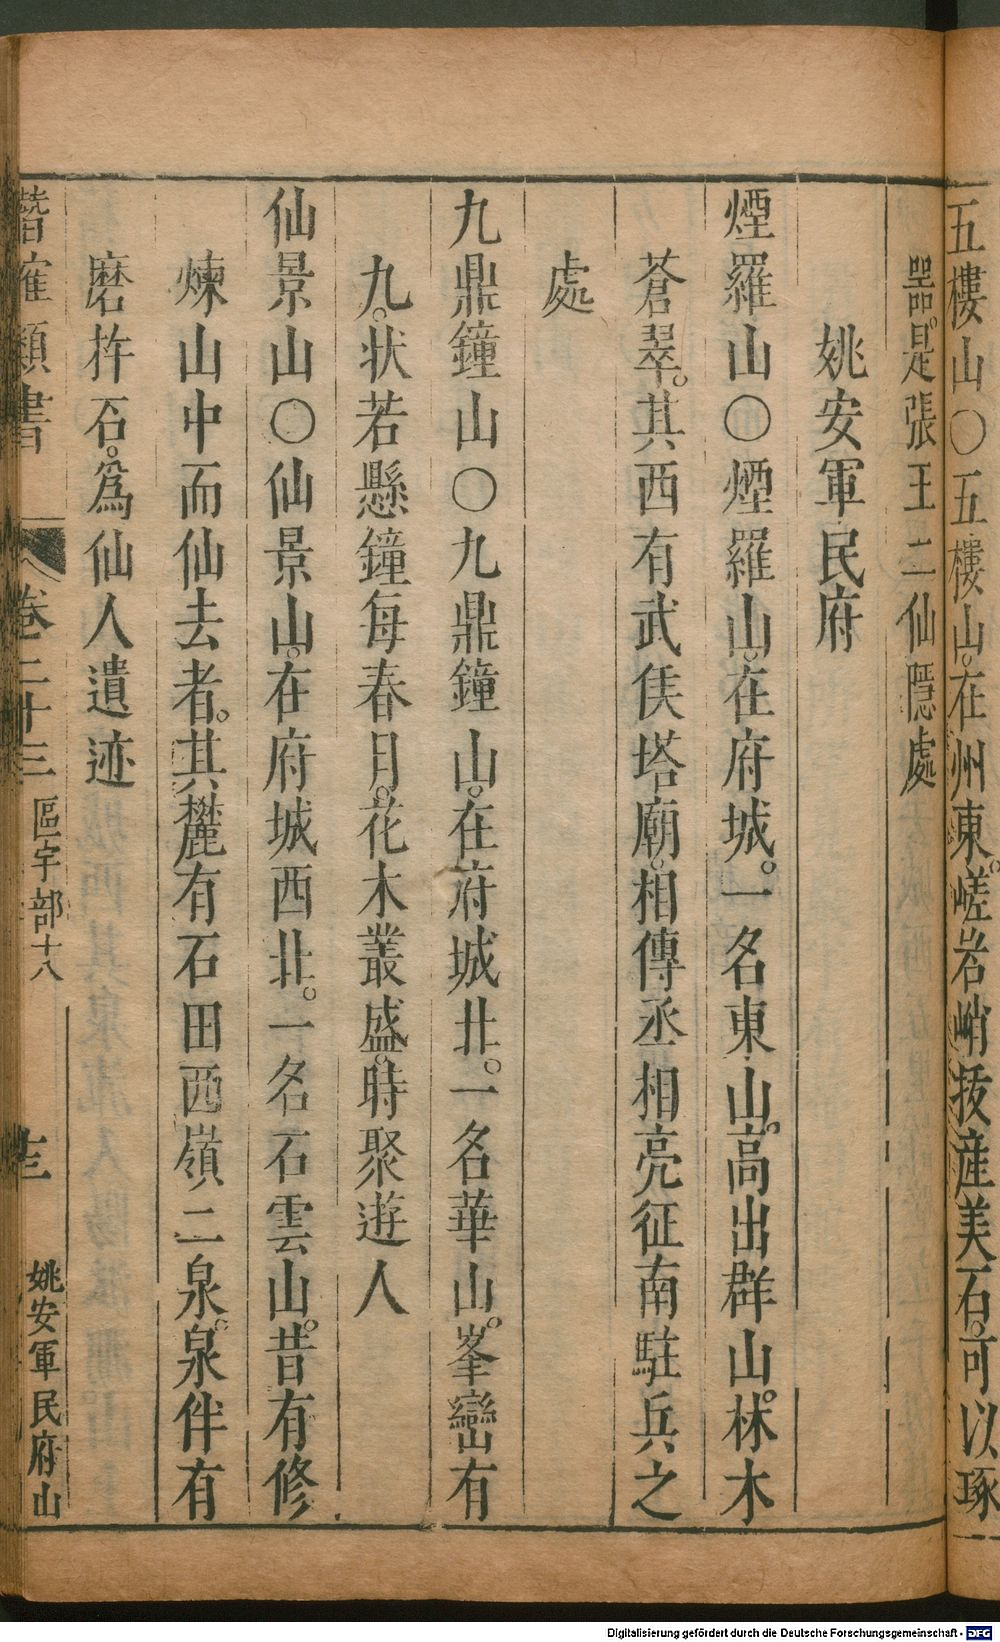 五樓山○五樓山。在州東。嵯岩峭拔産美石。可以琢
器。是張王二仙隱處
姚安軍民府
煙羅山○煙羅山。在府城。一名東山。高出群山。林木
蒼翠。其西有武侯塔廟。相傳丞相亮征南駐兵之
處
九鼎鐘山○九鼎鐘山。在府城北。一名華山。峯巒有
九。状若懸鐘每春月。花木叢盛。時聚遊人
仙景山○仙景山。在府城西北。一名石雲山。昔有修
煉山中而仙去者。其麓有石田西嶺二泉。泉伴有
磨杵石。爲仙人遺迹
類書 卷二十三 區宇部十八 姚安軍民府山
Digitalisierung gefördert durch die Deutsche Forschungsgemeinschaft - DFG